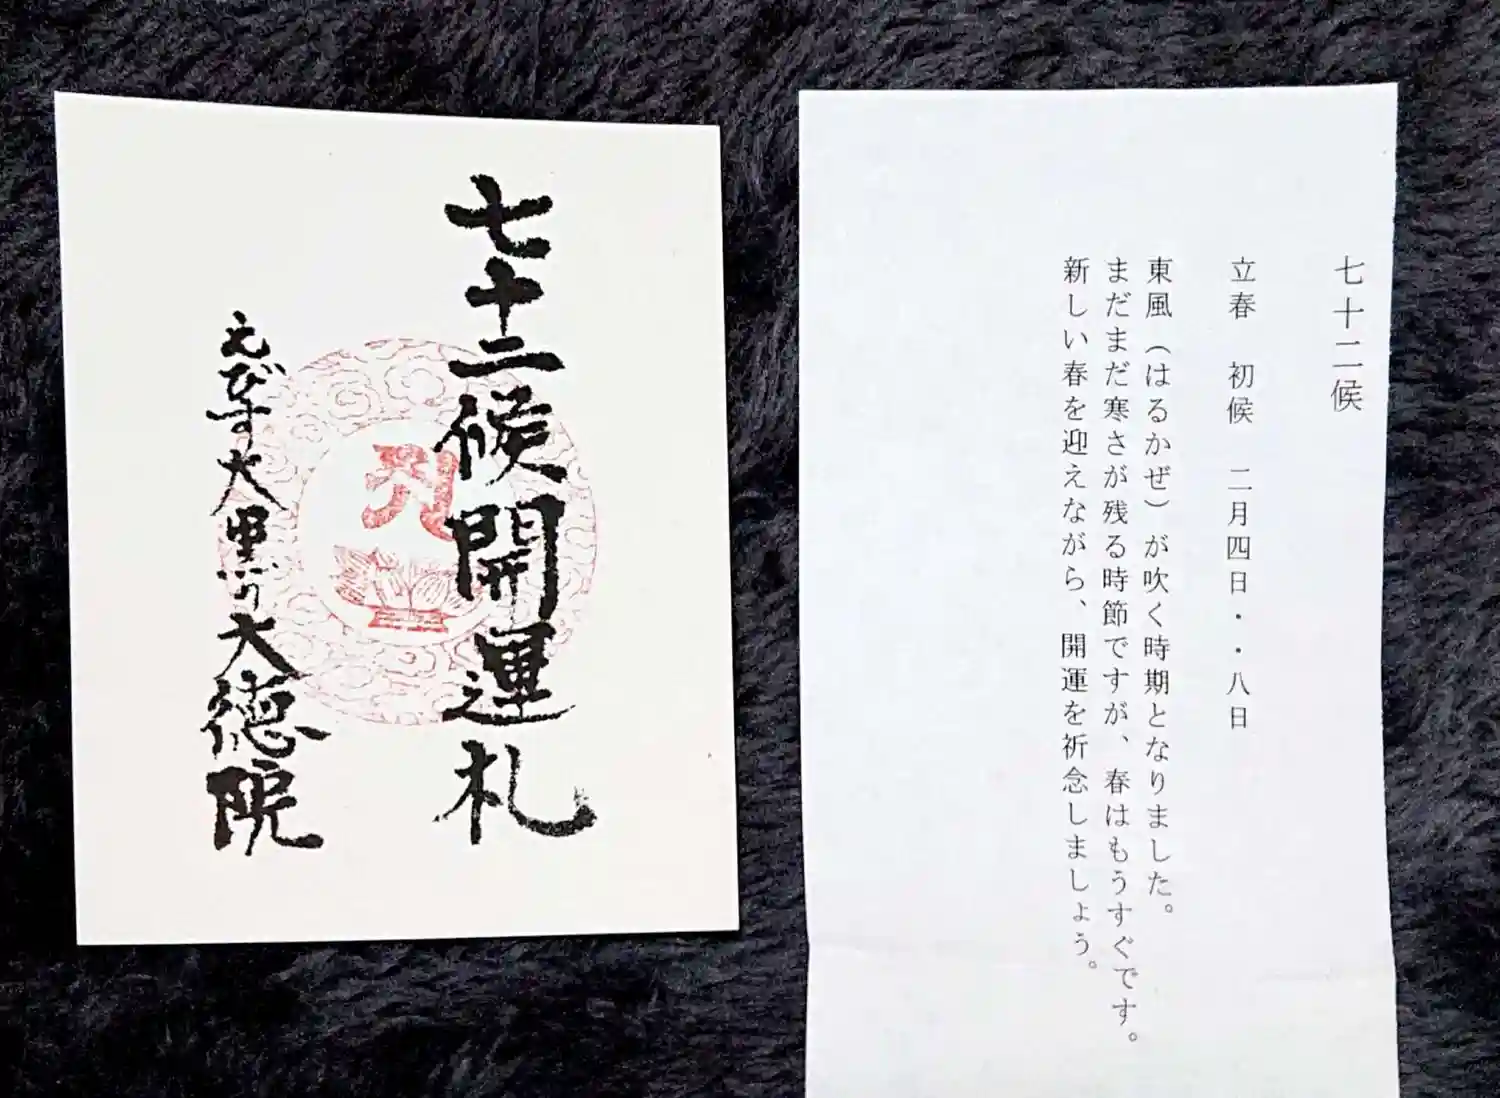 七十二候開運札
えびす大黒の大徳院
七十二候
立春 初候 二月四日・・八日
東風(はるかぜ)が吹く時期となりました。
まだまだ寒さが残る時節ですが、春はもうすぐです。
新しい春を迎えながら、開運を祈念しましょう。